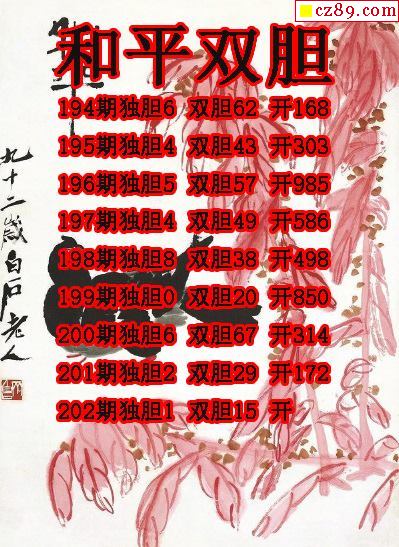 cz89.com
和平双胆
194期独胆6 双胆62 开168
195期独胆4 双胆43 开303
196期独胆5 双胆57 开985
197期独胆4 双胆49 开586
198期独胆8 双胆38 开498
199期独胆0 双胆20 开850
200期独胆6 双胆67 开314
201期独胆2 双胆29 开172
202期独胆1 双胆15 开
九十二岁白石老人